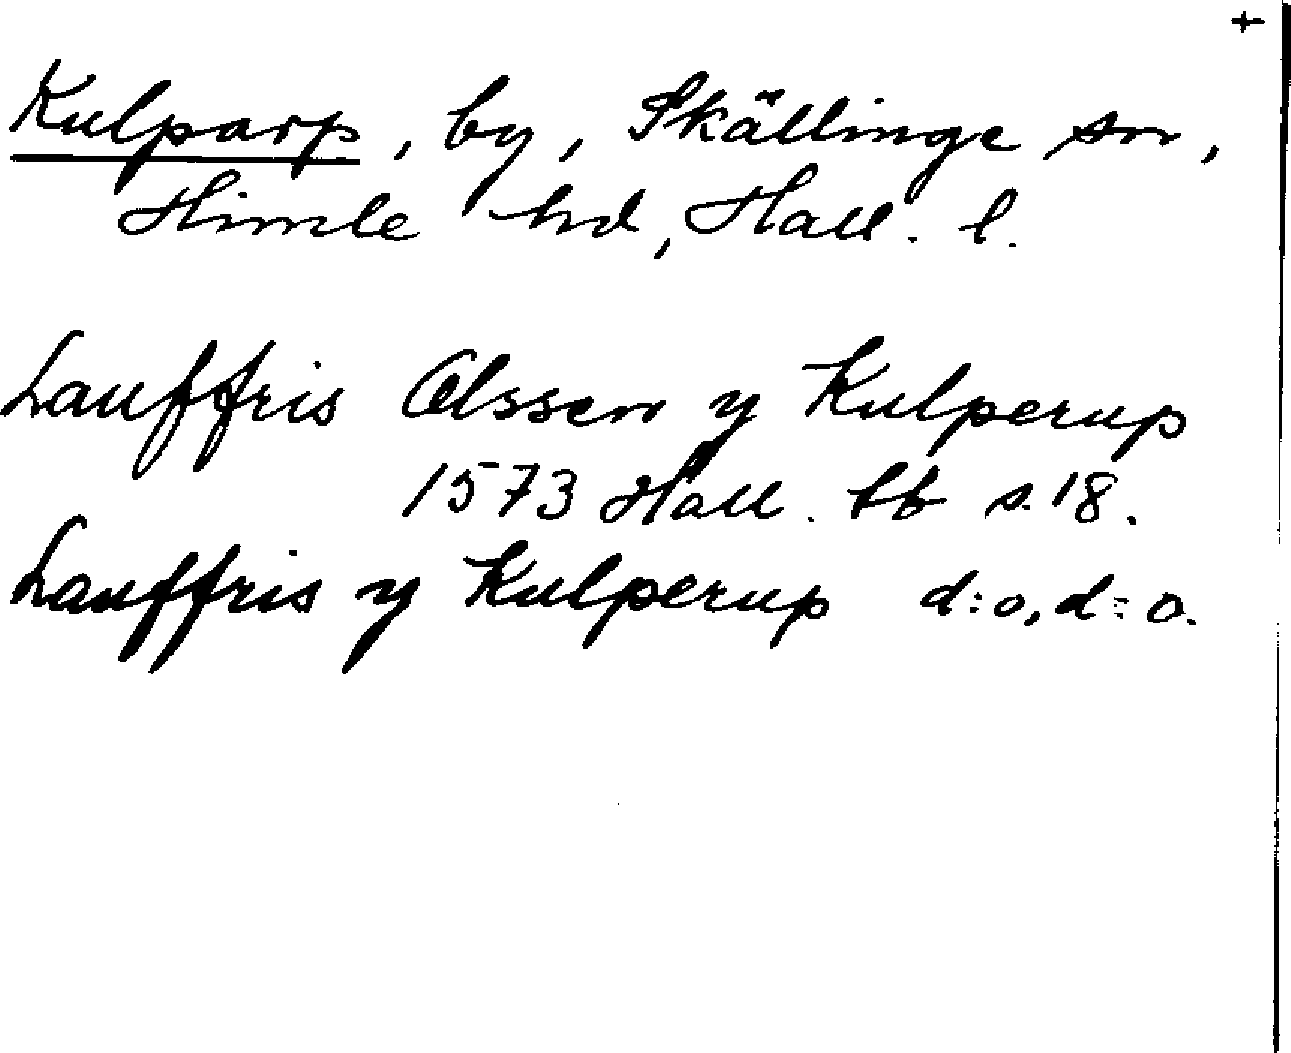 +
Kulparp, by, Skällinge sn,
Himle hd, Hall. l.
Lauffris Olssen y Kulperup
1573 Hall. bb s. 18.
Lauffris y Kulperup d:o, d:o.